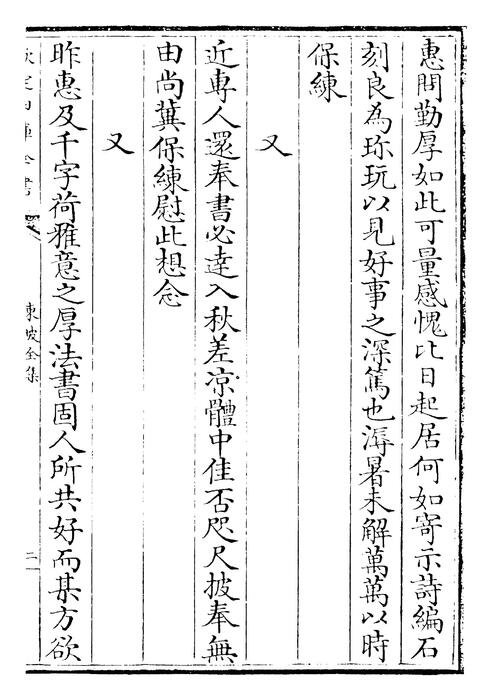 惠問勤厚如此可量感愧比日起居何如寄示詩編石
刻良為珎玩以見好事之深篤也溽暑未解萬萬以時
保練
又
近専人還奉書必達入秋差凉體中佳否咫尺披奉無
由尚冀保練慰此想念
又
昨惠及千字荷雅意之厚法書固人所共好而某方欲
欽定四庫全書
東坡全集
二